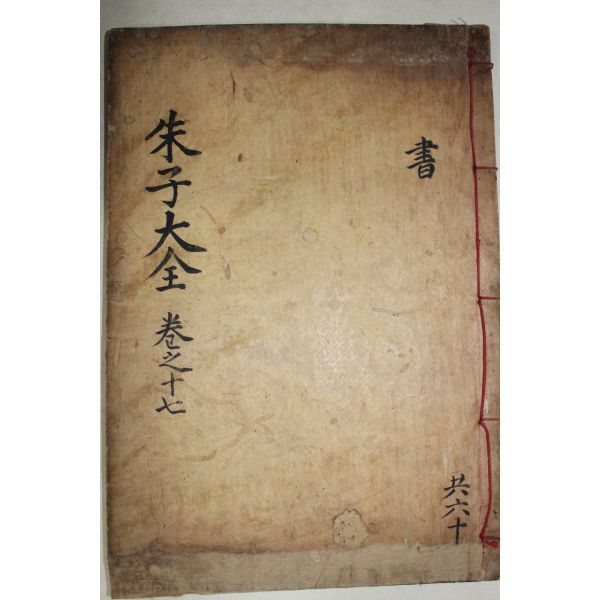 書
朱子大全 卷之十七
共六十